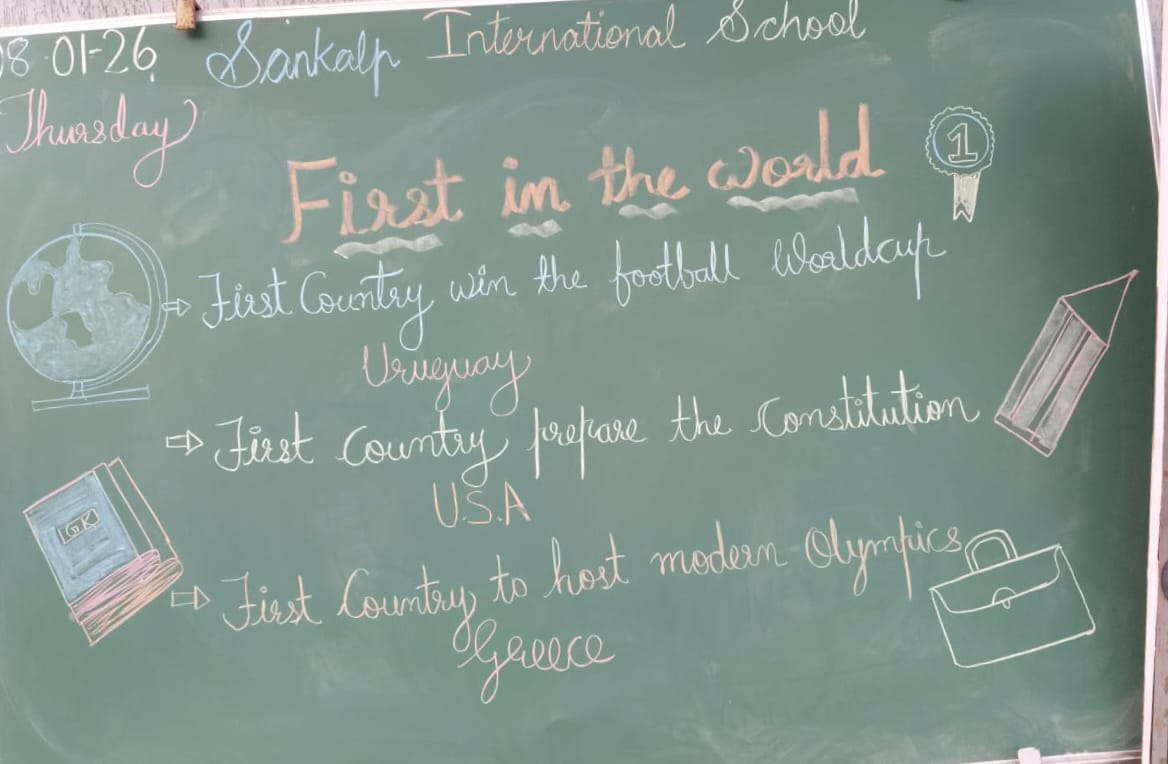 08-01-26 Sankalp International School
Thursday
First in the world
1
⇨ First Country win the football Worldcup
Uruguay
⇨ First Country prepare the Constitution
U.S.A
GK
⇨ First Country to host modern Olympics
Greece